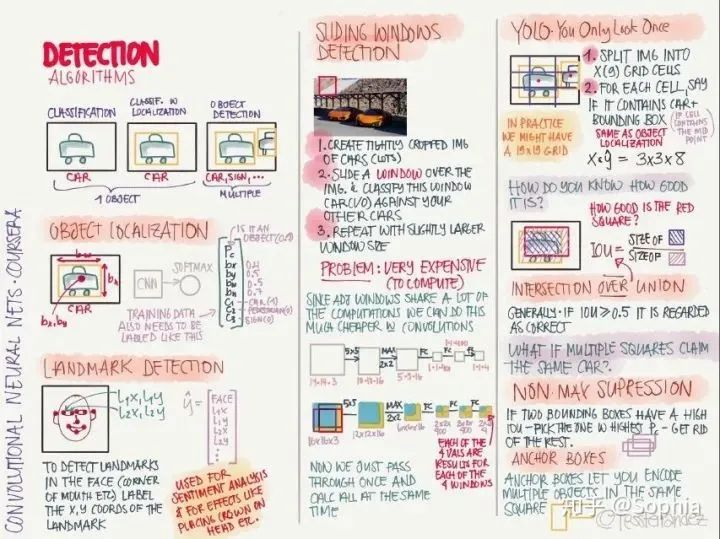 CONVOLUTIONAL NEURAL NETS · COURSERA
DETECTION
ALGORITHMS
CLASSIFICATION
CLASSIF. W
LOCALIZATION
OBJECT
DETECTION
CAR
CAR
CAR, SIGN, ...
1 OBJECT
MULTIPLE
OBJECT LOCALIZATION
bw
bh
bx, by
CAR
CNN
SOFTMAX
TRAINING DATA
ALSO NEEDS TO BE
LABELED LIKE THIS
IS IT AN
OBJECT (0/1)
Pc
bx 0.4
by 0.5
bh 0.5
bw 0.7
C1 CAR (1)
C2 PEDESTRIAN (0)
C3 SIGN (0)
LANDMARK DETECTION
l1x, l1y
l2x, l2y
ŷ =
FACE
l1x
l1y
l2x
l2y
TO DETECT LANDMARKS
IN THE FACE (CORNER
OF MOUTH ETC) LABEL
THE X,Y COORDS OF THE
LANDMARK
USED FOR
SENTIMENT ANALYSIS
& FOR EFFECTS LIKE
PLACING CROWN ON
HEAD ETC.
SLIDING WINDOWS
DETECTION
1. CREATE TIGHTLY CROPPED IMG
OF CARS (LOTS)
2. SLIDE A WINDOW OVER THE
IMG. & CLASSIFY THIS WINDOW
CAR (1/0) AGAINST YOUR
OTHER CARS
3. REPEAT WITH SLIGHTLY LARGER
WINDOW SIZE
PROBLEM: VERY EXPENSIVE
(TO COMPUTE)
SINCE ADJ WINDOWS SHARE A LOT OF
THE COMPUTATIONS WE CAN DO THIS
MUCH CHEAPER W CONVOLUTIONS
14×14×3
5×5
10×10×16
MAX
2×2
5×5×16
FC
1×1×400
FC
1×1×400
1×1×4
16×16×3
5×5
12×12×16
MAX
2×2
6×6×16
FC
2×2×
400
FC
2×2×
400
FC
2×2×
4
EACH OF THE
4 VALS ARE
RESULTS FOR
EACH OF THE
4 WINDOWS
NOW WE JUST PASS
THROUGH ONCE AND
CALC ALL AT THE SAME
TIME
YOLO · You Only Look Once
1. SPLIT IMG INTO
X (9) GRID CELLS
2. FOR EACH CELL, SAY
IF IT CONTAINS CAR +
BOUNDING BOX
(IF CELL
CONTAINS
THE MID
POINT)
IN PRACTICE
WE MIGHT HAVE
A 19×19 GRID
SAME AS OBJECT
LOCALIZATION
X × 9 = 3×3×8
HOW DO YOU KNOW HOW GOOD
IT IS?
HOW GOOD IS THE RED
SQUARE?
IOU =
SIZE OF
SIZE OF
INTERSECTION OVER UNION
GENERALLY · IF IOU ≥ 0.5 IT IS REGARDED
AS CORRECT
WHAT IF MULTIPLE SQUARES CLAIM
THE SAME CAR?
NON MAX SUPRESSION
IF TWO BOUNDING BOXES HAVE A HIGH
IOU - PICK THE ONE W HIGHEST Pc - GET RID
OF THE REST.
ANCHOR BOXES
ANCHOR BOXES LET YOU ENCODE
MULTIPLE OBJECTS IN THE SAME
SQUARE
知乎 @Sophia
@TessFerrandez